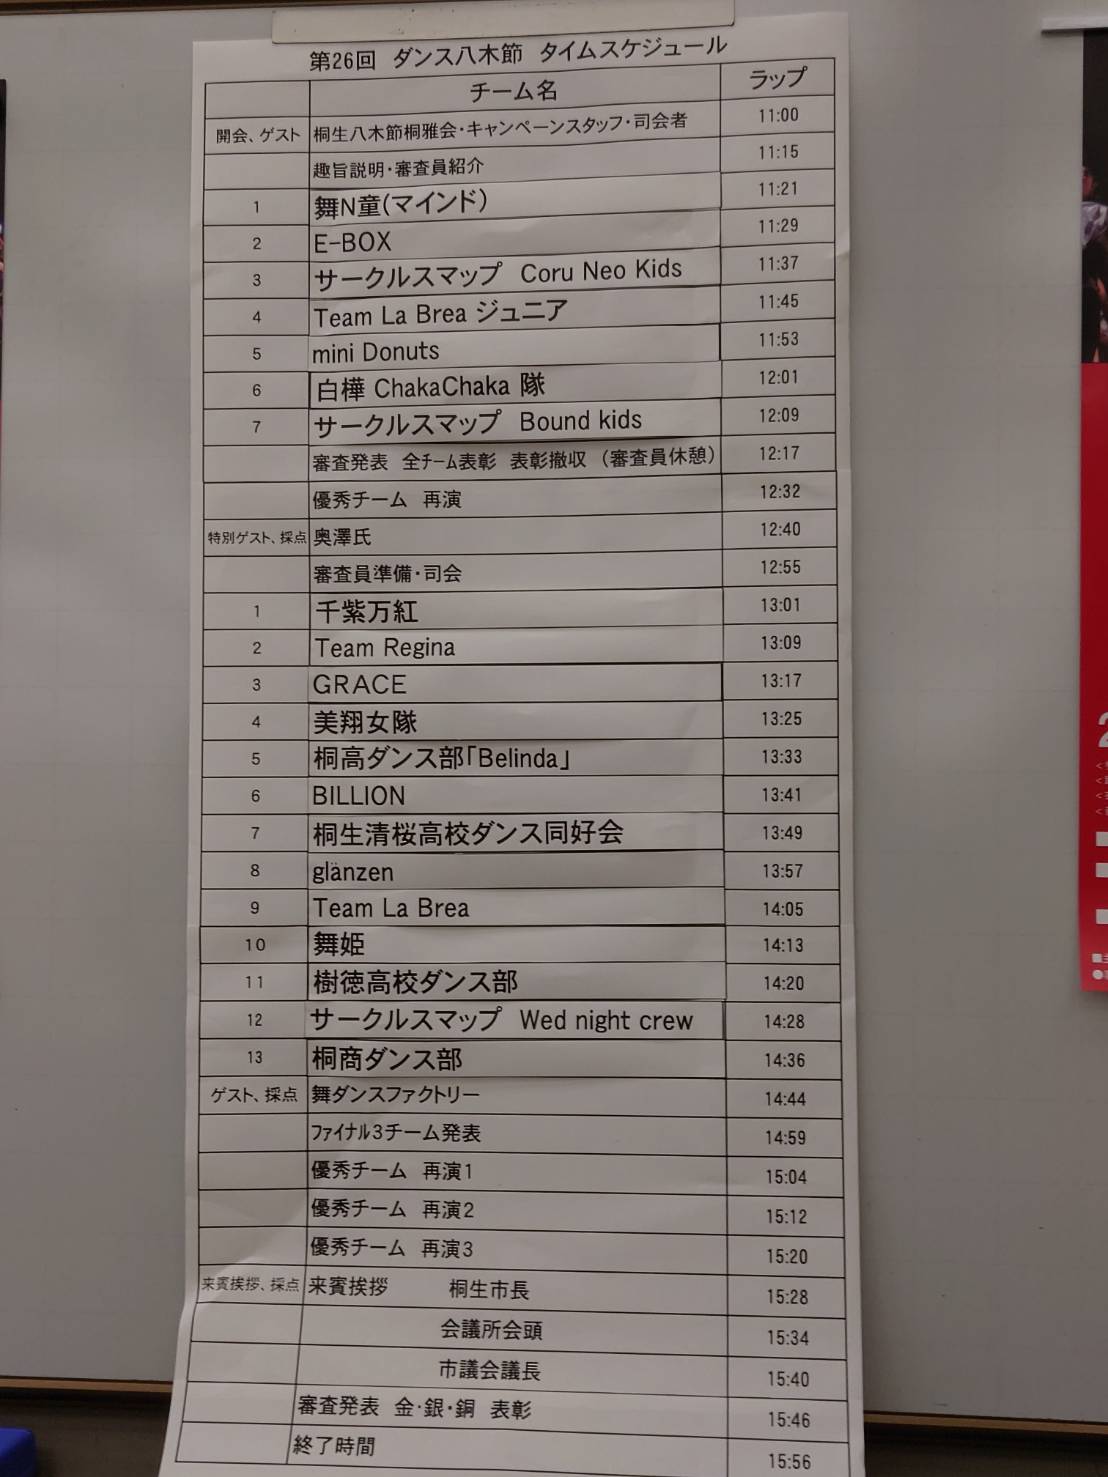 第26回 ダンス八木節 タイムスケジュール
チーム名 ラップ
開会、ゲスト 桐生八木節桐雅会・キャンペーンスタッフ・司会者 11:00
趣旨説明・審査員紹介 11:15
1 舞N童(マインド) 11:21
2 E-BOX 11:29
3 サークルスマップ Coru Neo Kids 11:37
4 Team La Brea ジュニア 11:45
5 mini Donuts 11:53
6 白樺 ChakaChaka 隊 12:01
7 サークルスマップ Bound kids 12:09
審査発表 全チーム表彰 表彰撤収 (審査員休憩) 12:17
優秀チーム 再演 12:32
特別ゲスト、採点 奥澤氏 12:40
審査員準備・司会 12:55
1 千紫万紅 13:01
2 Team Regina 13:09
3 GRACE 13:17
4 美翔女隊 13:25
5 桐高ダンス部「Belinda」 13:33
6 BILLION 13:41
7 桐生清桜高校ダンス同好会 13:49
8 glänzen 13:57
9 Team La Brea 14:05
10 舞姫 14:13
11 樹徳高校ダンス部 14:20
12 サークルスマップ Wed night crew 14:28
13 桐商ダンス部 14:36
ゲスト、採点 舞ダンスファクトリー 14:44
ファイナル3チーム発表 14:59
優秀チーム 再演1 15:04
優秀チーム 再演2 15:12
優秀チーム 再演3 15:20
来賓挨拶、採点 来賓挨拶 桐生市長 15:28
会議所会頭 15:34
市議会議長 15:40
審査発表 金・銀・銅 表彰 15:46
終了時間 15:56